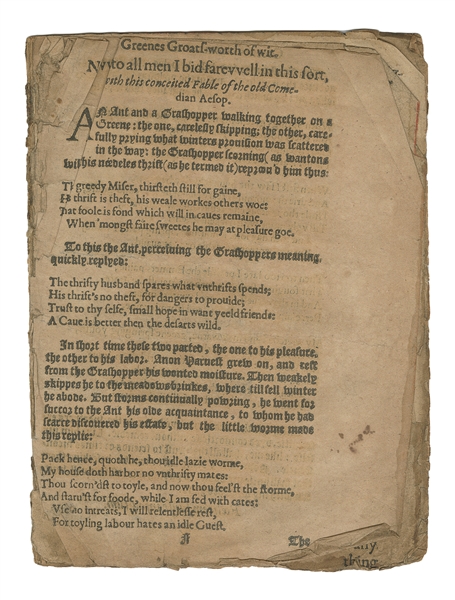 Greenes Groats-worth of wit.
Now to all men I bid farevvell in this sort,
with this conceited Fable of the old Come-
dian Aesop.
AN Ant and a Grashopper walking together on a
Greene: the one, carelesly skipping; the other, care-
fully prying what winters prouision was scattered
in the way: the Grashopper scorning (as wantons
wil) his needeles thrift (as he termed it) reproou'd him thus:
greedy Miser, thirsteth still for gaine,
thrift is theft, his weale workes others woe:
foole is fond which will in caues remaine,
When 'mongst faire sweetes he may at pleasure goe.
To this the Ant, perceiuing the Grashoppers meaning,
quickly replyed:
The thrifty husband spares what vnthrifts spends;
His thrift's no theft, for dangers to prouide;
Trust to thy selfe, small hope in want yeeld friends:
A Caue is better then the desarts wild.
In short time these two parted, the one to his pleasure,
the other to his labor. Anon Haruest grew on, and reft
from the Grashopper his wonted moisture. Then weakely
skippes he to the meadows brinkes, where till fell winter
he abode. But storms continually powring, he went for
succor to the Ant his olde acquaintance, to whom he had
scarce discouered his estate, but the little worme made
this replie:
Pack hence, quoth he, thou idle lazie worme,
My house doth harbor no vnthrifty mates:
Thou scorn'dst to toyle, and now thou feel'st the storme,
And staru'st for foode, while I am fed with cates:
Vse no intreats, I will relentlesse rest,
For toyling labour hates an idle Guest.
The
thing